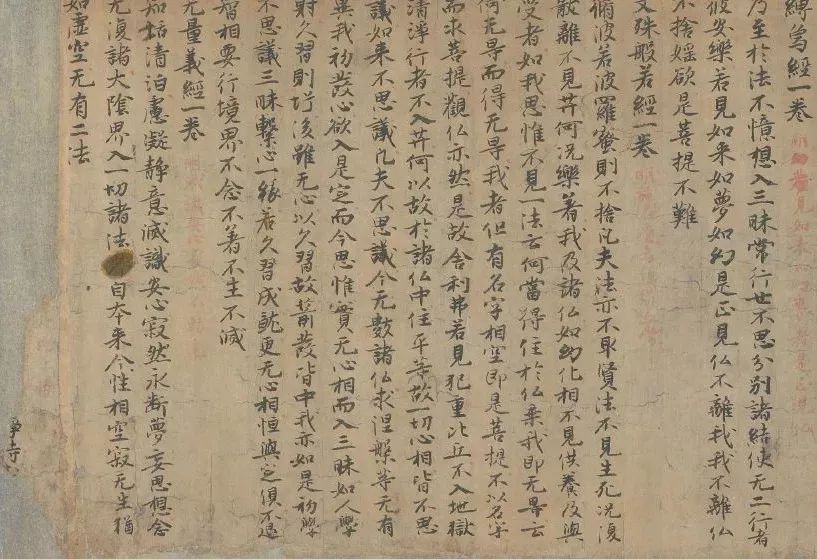 縛
經一卷
乃至於法不憶想入三昧常行世不思分別諸結使无二行者
彼安樂若見如来如夢如幻是正見仏不離我我不離仏
不捨婬欲是菩提不難
文殊般若經一卷
彌波若波羅蜜則不捨凡夫法亦不取賢法不見生死況復
散離不見䒭何況樂著我及諸仏如幻化相不見供養及與
受者如我思惟不見一法云何當得住於仏乗我即无㝵云
何无㝵而得无㝵我者但有名字相空即是菩提不以名字
而求菩提觀仏亦然是故舍利弗若見犯重比丘不入地獄
清淨行者不入䒭何以故於諸仏中住平等故一切心相皆不思
議如来不思議凡夫不思議今无數諸仏求涅槃等无有
異我初發心欲入是定而今思惟實无心相而入三昧如人學
射久習則巧後雖无心以久習故箭發皆中我亦如是初學
不思議三昧繋心一縁若久習成就更无心相恒與定俱不退
智相要行境界不念不著不生不滅
无量義經一卷
知恬清泊慮凝静意滅識安心寂然永断夢妄思想念
无復諸大陰界入一切諸法自本来今性相空寂无生猶
如虚空无有二法